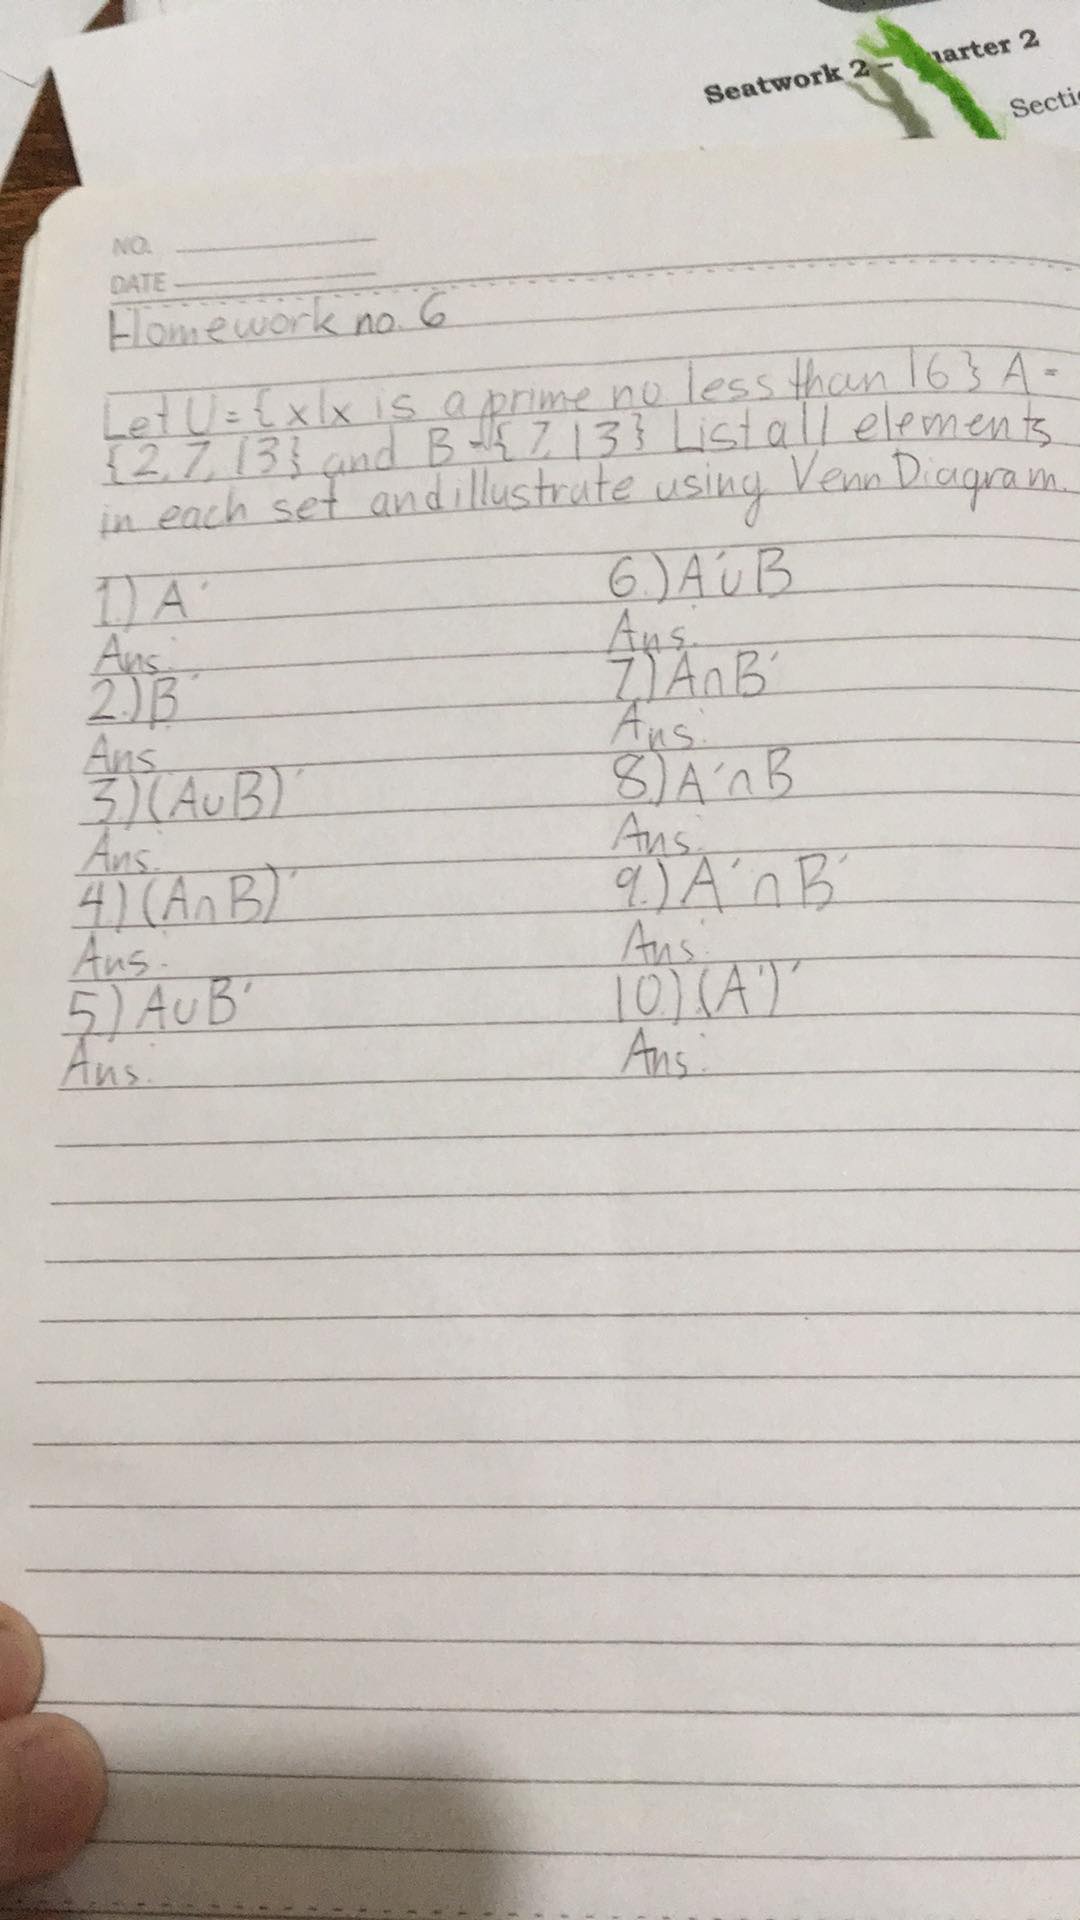 Seatwork 2 – uarter 2
Secti
NO.
DATE
Homework no. 6
Let U = {x|x is a prime no less than 16} A =
{2, 7, 13} and B = {7, 13} List all elements
in each set and illustrate using Venn Diagram.
1.) A'
Ans.
2.) B'
Ans
3.) (A∪B)'
Ans.
4.) (A∩B)'
Ans.
5.) A∪B'
Ans.
6.) A'∪B
Ans.
7.) A∩B'
Ans.
8.) A'∩B
Ans.
9.) A'∩B'
Ans.
10.) (A')'
Ans.